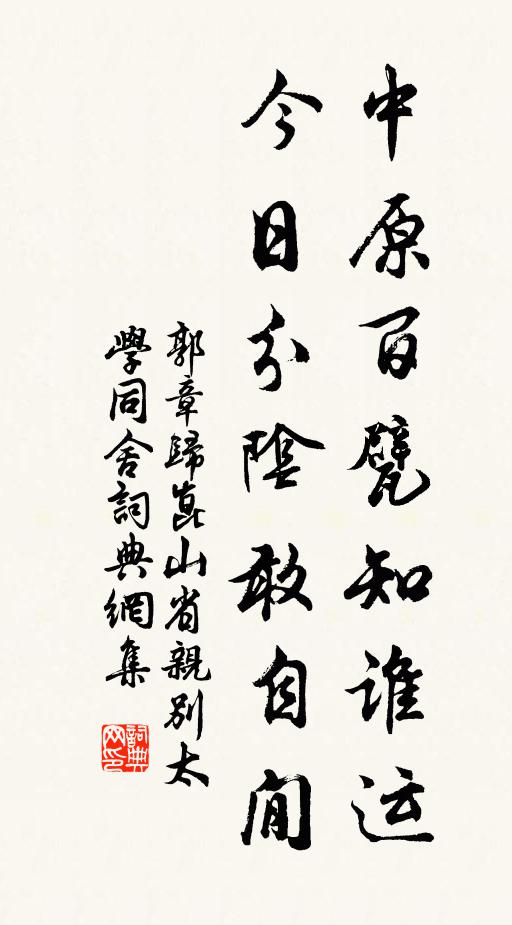 中原百甓知谁运
今日分陰敢自閒
郭章歸崑山省親別太
學同舍詞典網集
詞典
网印